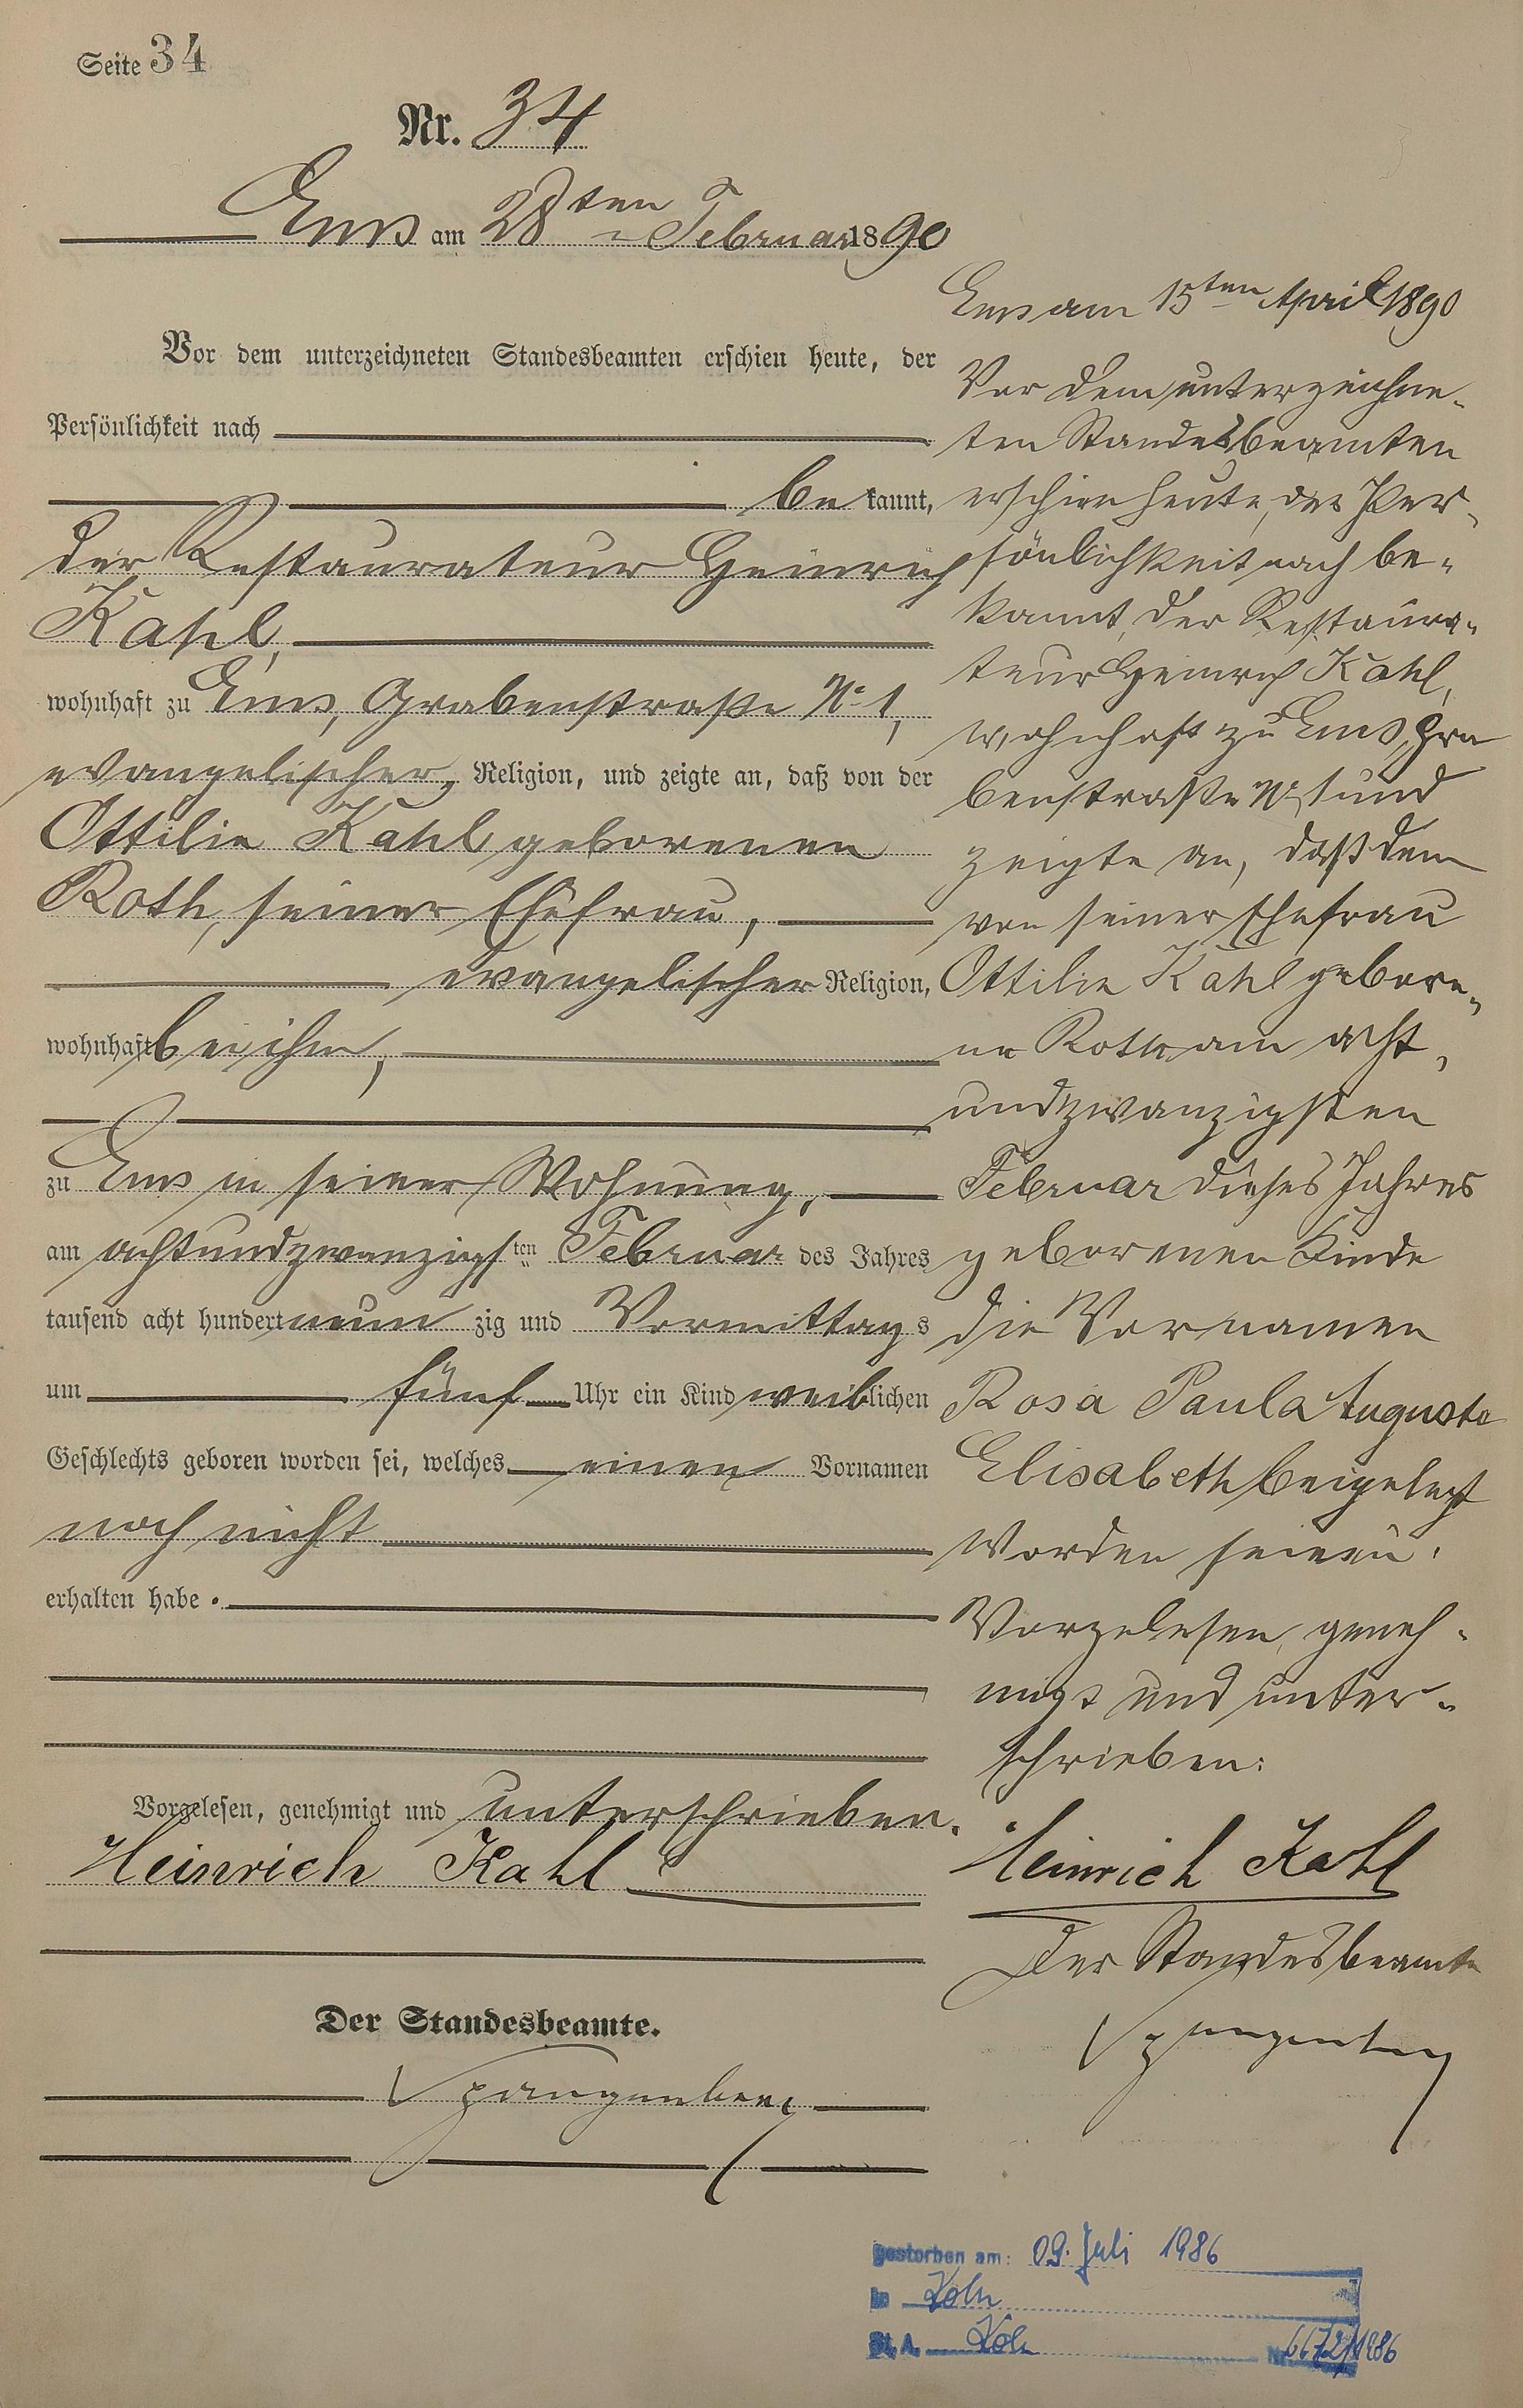 Seite 34
Nr. 34
Ems am 28ten Februar 1890
Vor dem unterzeichneten Standesbeamten erschien heute, der
Persönlichkeit nach
be kannt,
der Restaurateur Heinrich
Kahl,
wohnhaft zu Ems, Grabenstraße No 1,
evangelischer Religion, und zeigte an, daß von der
Ottilie Kahl geborenen
Roth, seiner Ehefrau,
evangelischer Religion,
wohnhaft bei ihm,
zu Ems in seiner Wohnung,
am achtundzwanzigsten Februar des Jahres
tausend acht hundert neun zig und Vormittags
um fünf Uhr ein Kind weiblichen
Geschlechts geboren worden sei, welches einen Vornamen
noch nicht
erhalten habe.
Vorgelesen, genehmigt und unterschrieben.
Heinrich Kahl
Der Standesbeamte.
Spangenberg
Ems am 15ten April 1890
Vor dem unterzeichne-
ten Standesbeamten
erschien heute, der Per-
sönlichkeit nach be-
kannt, der Restaura-
teur Heinrich Kahl,
wohnhaft zu Ems, Gra
benstraße No 1 und
zeigte an, daß dem
von seiner Ehefrau
Ottilie Kahl gebore-
ne Roth am acht-
undzwanzigsten
Februar dieses Jahres
geborenen Kinde
die Vornamen
Rosa Paula Auguste
Elisabeth beigelegt
worden seien.
Vorgelesen, geneh-
migt und unter-
schrieben:
Heinrich Kahl
Der Standesbeamte
Spangenberg
gestorben am: 09. Juli 1986
in Köln
St. A. Köln Nr. /1986